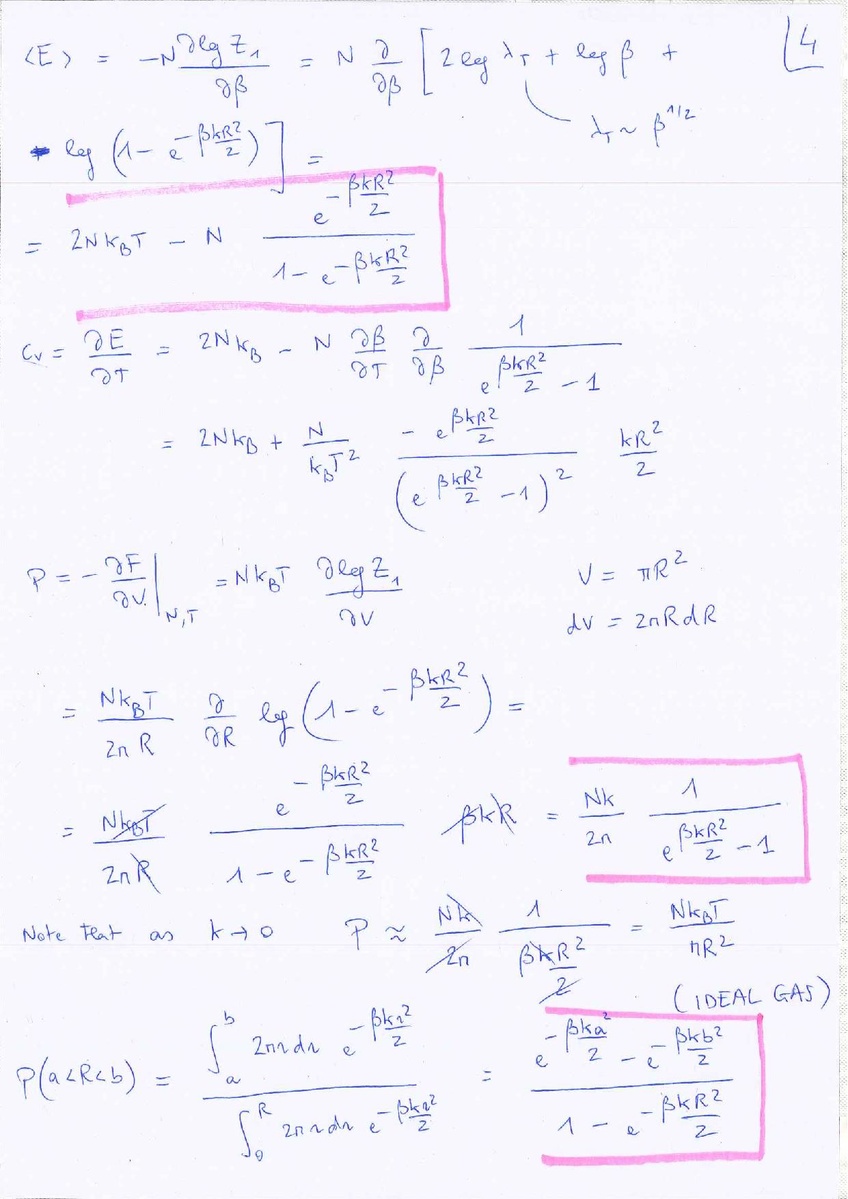 4
⟨E⟩ = -N ∂lg Z₁/∂β = N ∂/∂β [ 2 lg λ_T + lg β +
λ_T ~ β^{1/2}
- lg (1 - e^{-βkR²/2}) ] =
= 2Nk_BT - N e^{-βkR²/2} / (1 - e^{-βkR²/2})
C_V = ∂E/∂T = 2Nk_B - N ∂β/∂T ∂/∂β 1/(e^{βkR²/2} - 1)
= 2Nk_B + N/(k_BT²) · (- e^{βkR²/2})/(e^{βkR²/2} - 1)² · kR²/2
P = - ∂F/∂V |_{N,T} = Nk_BT ∂lg Z₁/∂V    V = πR²
dV = 2πR dR
= Nk_BT/(2πR) ∂/∂R lg (1 - e^{-βkR²/2}) =
= Nk_BT/(2πR) · e^{-βkR²/2}/(1 - e^{-βkR²/2}) βkR = Nk/2π · 1/(e^{βkR²/2} - 1)
Note that as k → 0   P ≈ Nk/2π · 1/(βkR²/2) = Nk_BT/πR²
(IDEAL GAS)
P(a<R<b) = ∫_a^b 2πr dr e^{-βkr²/2} / ∫_0^R 2πr dr e^{-βkr²/2} = (e^{-βka²/2} - e^{-βkb²/2})/(1 - e^{-βkR²/2})